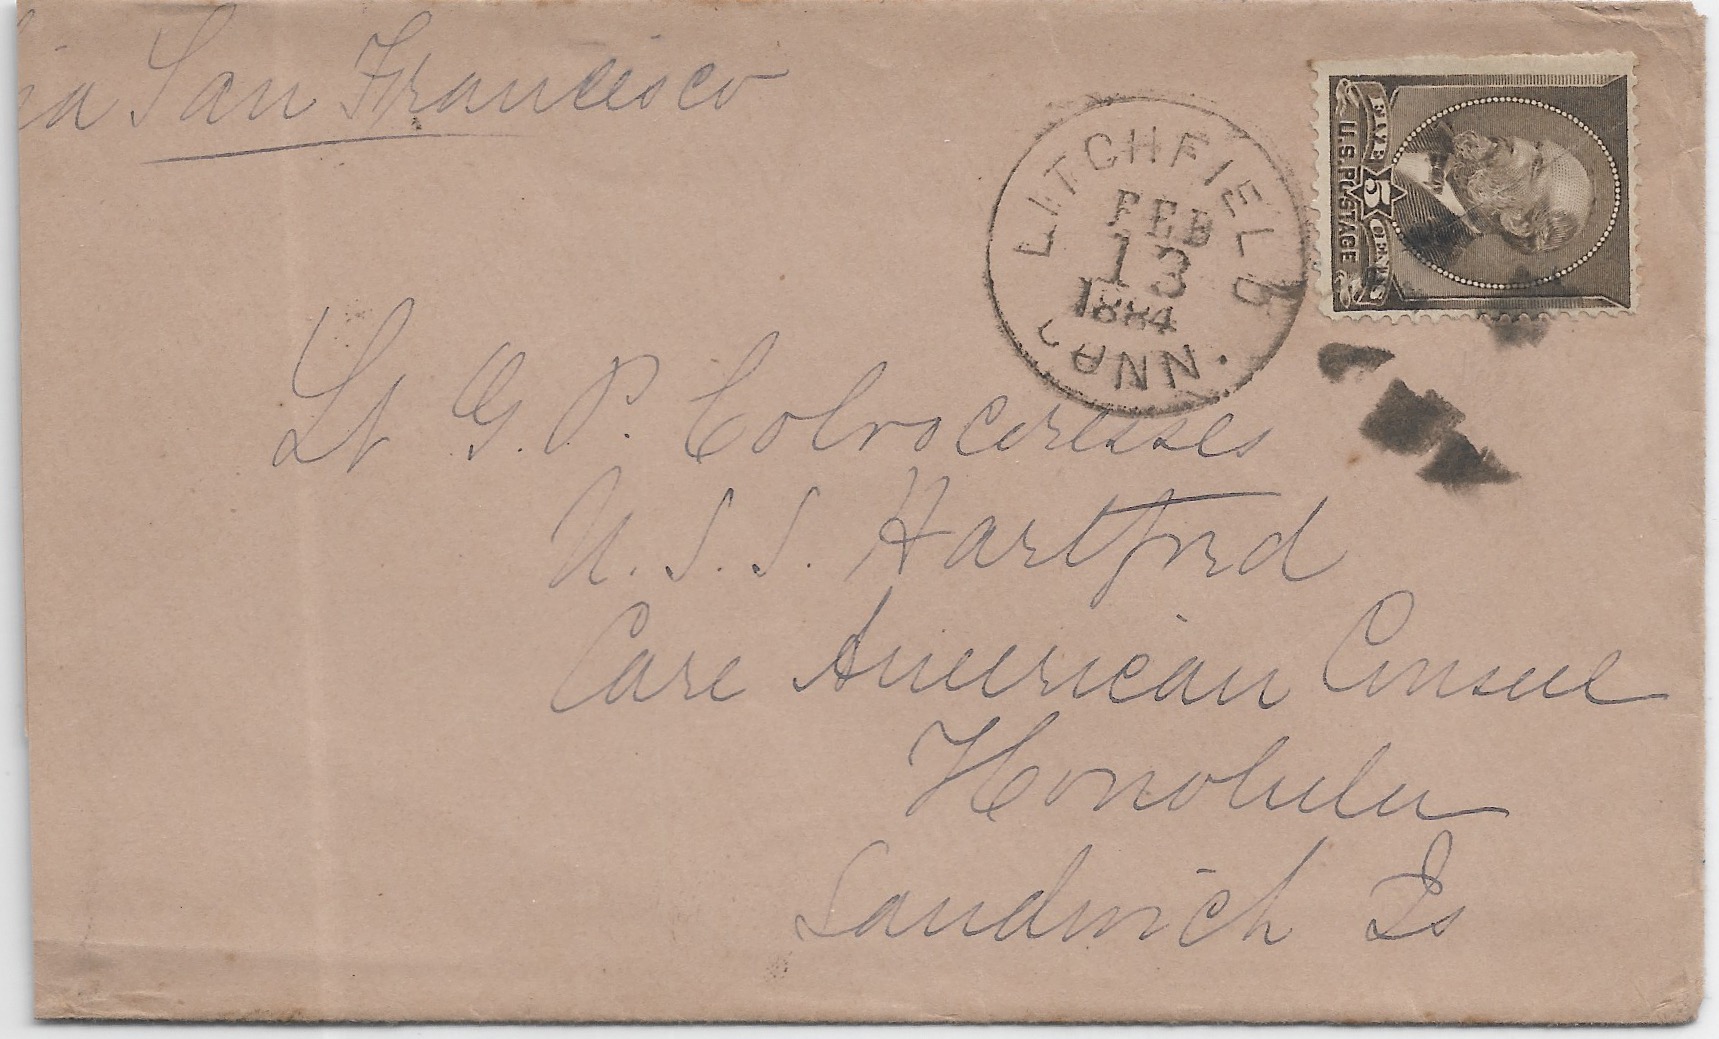 via San Francisco
LITCHFIELD
FEB
13
1884
CONN.
FIVE 5 CENTS
U.S. POSTAGE
Lt G. P. Colvocoresses
U. S. S. Hartford
Care American Consul
Honolulu
Sandwich Is